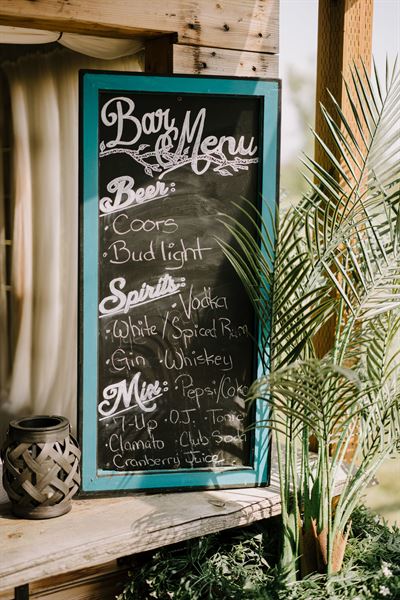 Bar Menu
Beer:
· Coors
· Bud light
Spirits: · Vodka
· White/Spiced Rum
· Gin · Whiskey
Mix: · Pepsi/Coke
· 7-Up · O.J. Tonic
Clamato · Club Soda
Cranberry Juice